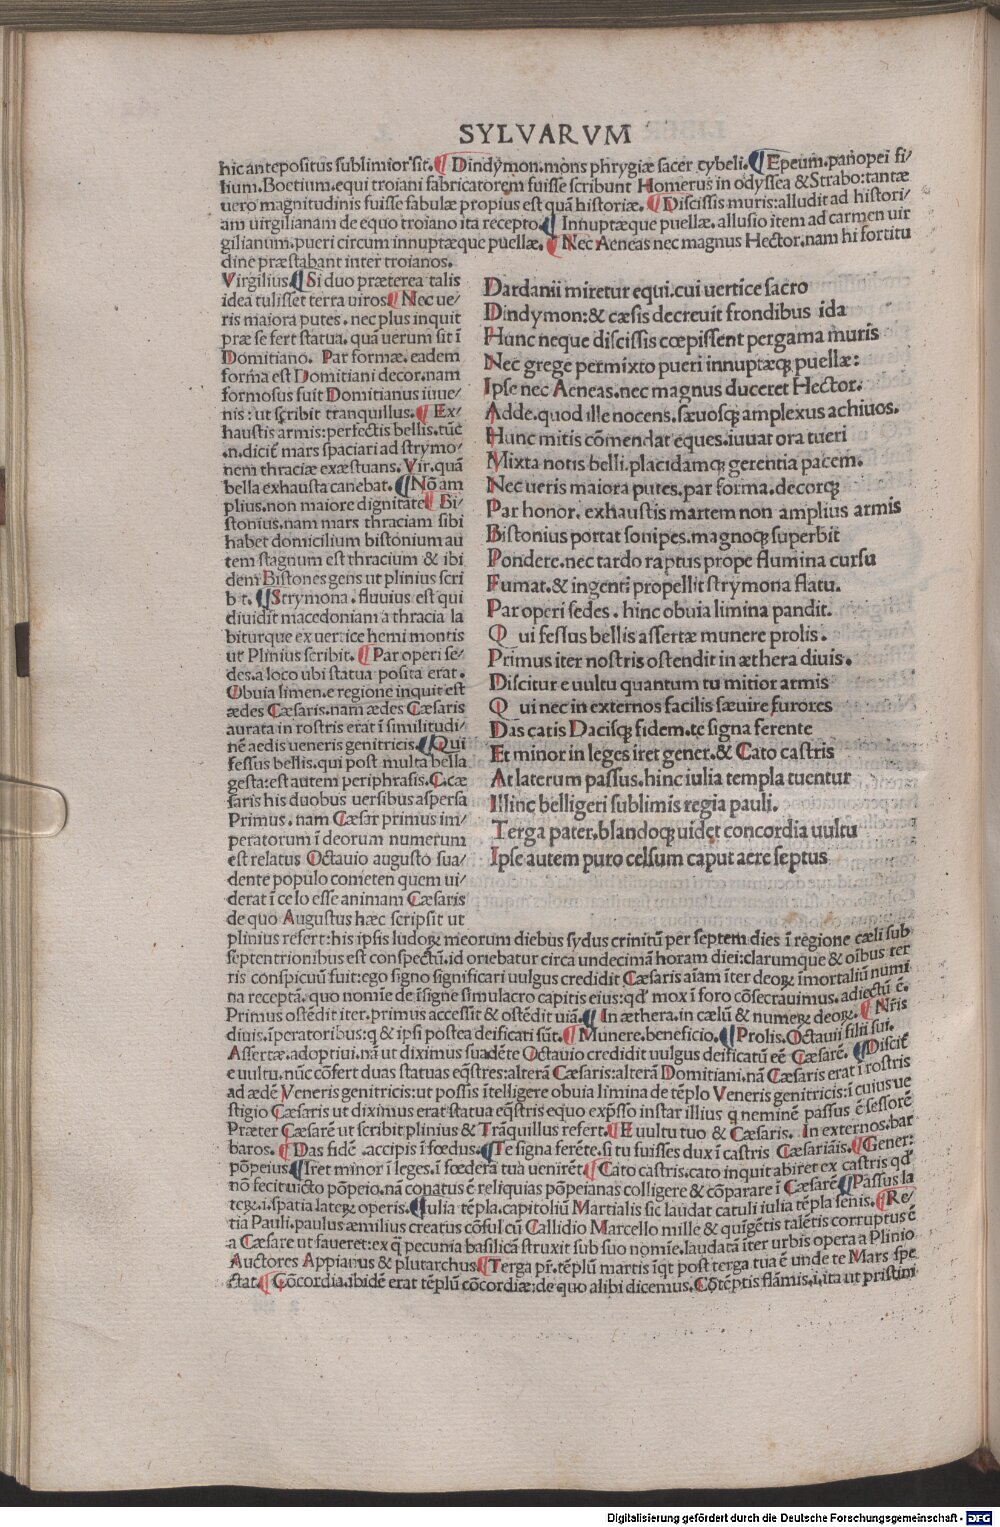 SYLVARVM
hic antepositus sublimior sit. ¶ Dindymon. mons phrygiæ sacer cybeli. ¶ Epeum. panopei fi/
lium. Boetium. equi troiani fabricatorem fuisse scribunt Homerus in odyssea & Strabo: tantæ
uero magnitudinis fuisse fabulæ propius est quā historiæ. ¶ Discissis muris: alludit ad histori/
am uirgilianam de equo troiano ita recepto. ¶ Innuptæque puellæ. allusio item ad carmen uir
gilianum. pueri circum innuptæque puellæ. ¶ Nec Aeneas nec magnus Hector. nam hi fortitu
dine præstabant inter troianos.
Virgilius. ¶ Si duo præterea talis
idea tulisset terra uiros ¶ Nec ue/
ris maiora putes. nec plus inquit
præ se fert statua. quā uerum sit ī
Domitiano. Par formæ. eadem
forma est Domitiani decor. nam
formosus fuit Domitianus iuue/
nis: ut scribit tranquillus. ¶ Ex/
haustis armis: perfectis bellis. tūc
.n. dicit̄ mars spaciari ad strymo/
nem thraciæ exæstuans. Vir. quā
bella exhausta canebat. ¶ Nō am
plius. non maiore dignitate ¶ Bi/
stonius. nam mars thraciam sibi
habet domicilium bistonium au
tem stagnum est thracium & ibi
dem Bistones gens ut plinius scri
b t. ¶ Strymona. fluuius est qui
diuidit macedoniam a thracia la
biturque ex uertice hemi montis
ut Plinius scribit. ¶ Par operi se/
des. a loco ubi statua posita erat.
Obuia limen. e regione inquit est
ædes Cæsaris. nam ædes Cæsaris
aurata in rostris erat ī similitudi/
nē aedis ueneris genitricis. ¶ Qui
fessus bellis. qui post multa bella
gesta: est autem periphrasis. C. cæ
saris his duobus uersibus aspersa
Primus. nam Cæsar primus im/
peratorum ī deorum numerum
est relatus Octauio augusto sua/
dente populo cometen quem ui/
derat ī celo esse animam Cæsaris
de quo Augustus hæc scripsit ut
Dardanii miretur equi. cui uertice sacro
Dindymon: & cæsis decreuit frondibus ida
Hunc neque discissis cœpissent pergama muris
Nec grege permixto pueri innuptæqꝫ puellæ:
Ipse nec Aeneas. nec magnus duceret Hector.
Adde. quod ille nocens. sæuosqꝫ amplexus achiuos.
Hunc mitis cōmendat eques. iuuat ora tueri
Mixta notis belli. placidamqꝫ gerentia pacem.
Nec ueris maiora putes. par forma. decorqꝫ
Par honor. exhaustis martem non amplius armis
Bistonius portat sonipes. magnoqꝫ superbit
Pondere. nec tardo raptus prope flumina cursu
Fumat. & ingenti propellit strymona flatu.
Par operi sedes. hinc obuia limina pandit.
Q ui fessus bellis assertæ munere prolis.
Primus iter nostris ostendit in æthera diuis.
Discitur e uultu quantum tu mitior armis
Q ui nec in externos facilis sæuire furores
Das catis Dacisqꝫ fidem. te signa ferente
Et minor in leges iret gener. & Cato castris
At laterum passus. hinc iulia templa tuentur
Illinc belligeri sublimis regia pauli.
Terga pater. blandoqꝫ uidet concordia uultu
Ipse autem puro celsum caput aere septus
plinius refert: his ipsis ludoꝝ meorum diebus sydus crinitū per septem dies ī regione cæli sub
septentrionibus est conspectū. id oriebatur circa undecimā horam diei: clarumque & oībus ter
ris conspicuū fuit: ego signo significari uulgus credidit Cæsaris aīam īter deoꝝ īmortaliū numi
na receptā. quo nomīe de īsigne simulacro capitis eius: qđ mox ī foro cōsecrauimus. adiectū ē.
Primus ostēdit iter. primus accessit & ostēdit uiā. ¶ In æthera. in cælū & numeꝝ deoꝝ. ¶ Nr̄is
diuis. īperatoribus: q & ipsi postea deificati sūt. ¶ Munere. beneficio. ¶ Prolis. Octauii filii sui.
Assertæ. adoptiui. nā ut diximus suadēte Octauio credidit uulgus deificatū eē Cæsarē. ¶ Discit̄
e uultu. nūc cōfert duas statuas eq̄stres: alterā Cæsaris: alterā Domitiani. nā Cæsaris erat ī rostris
ad ædē Veneris genitricis: ut possis ītelligere obuia limina de tēplo Veneris genitricis: ī cuius ue
stigio Cæsaris ut diximus erat statua eq̄stris equo exp̄sso instar illius q neminē passus ē sessorē
Præter Cæsarē ut scribit plinius & Trāquillus refert. ¶ E uultu tuo & Cæsaris. In externos. bar
baros. ¶ Das fidē. accipis ī fœdus. ¶ Te signa ferēte. si tu fuisses dux ī castris Cæsariāis. ¶ Gener:
pōpeius ¶ Iret minor ī leges. ī fœdera tua uenirēt ¶ Cato castris. cato inquit abiret ex castris qđ
nō fecit uicto pōpeio. nā conatus ē reliquias pōpeianas colligere & cōparare ī Cæsarē ¶ Passus la
teꝝ. i. spatia lateꝝ operis. ¶ Iulia tēpla. capitoliū Martialis sic laudat catuli iulia tēpla senis. ¶ Re/
tia Pauli. paulus æmilius creatus cōsul cū Callidio Marcello mille & quīgētis talētis corruptus ē
a Cæsare ut faueret: ex q̄ pecunia basilicā struxit sub suo nomīe. laudatā īter urbis opera a Plinio
Auctores Appianus & plutarchus ¶ Terga pr̄. tēplū martis īqt post terga tua ē unde te Mars spe
ctat. ¶ Cōcordia. ibidē erat tēplū cōcordiæ: de quo alibi dicemus. Cōtēptis flāmis. i. ita ut pristini
Digitalisierung gefördert durch die Deutsche Forschungsgemeinschaft - DFG